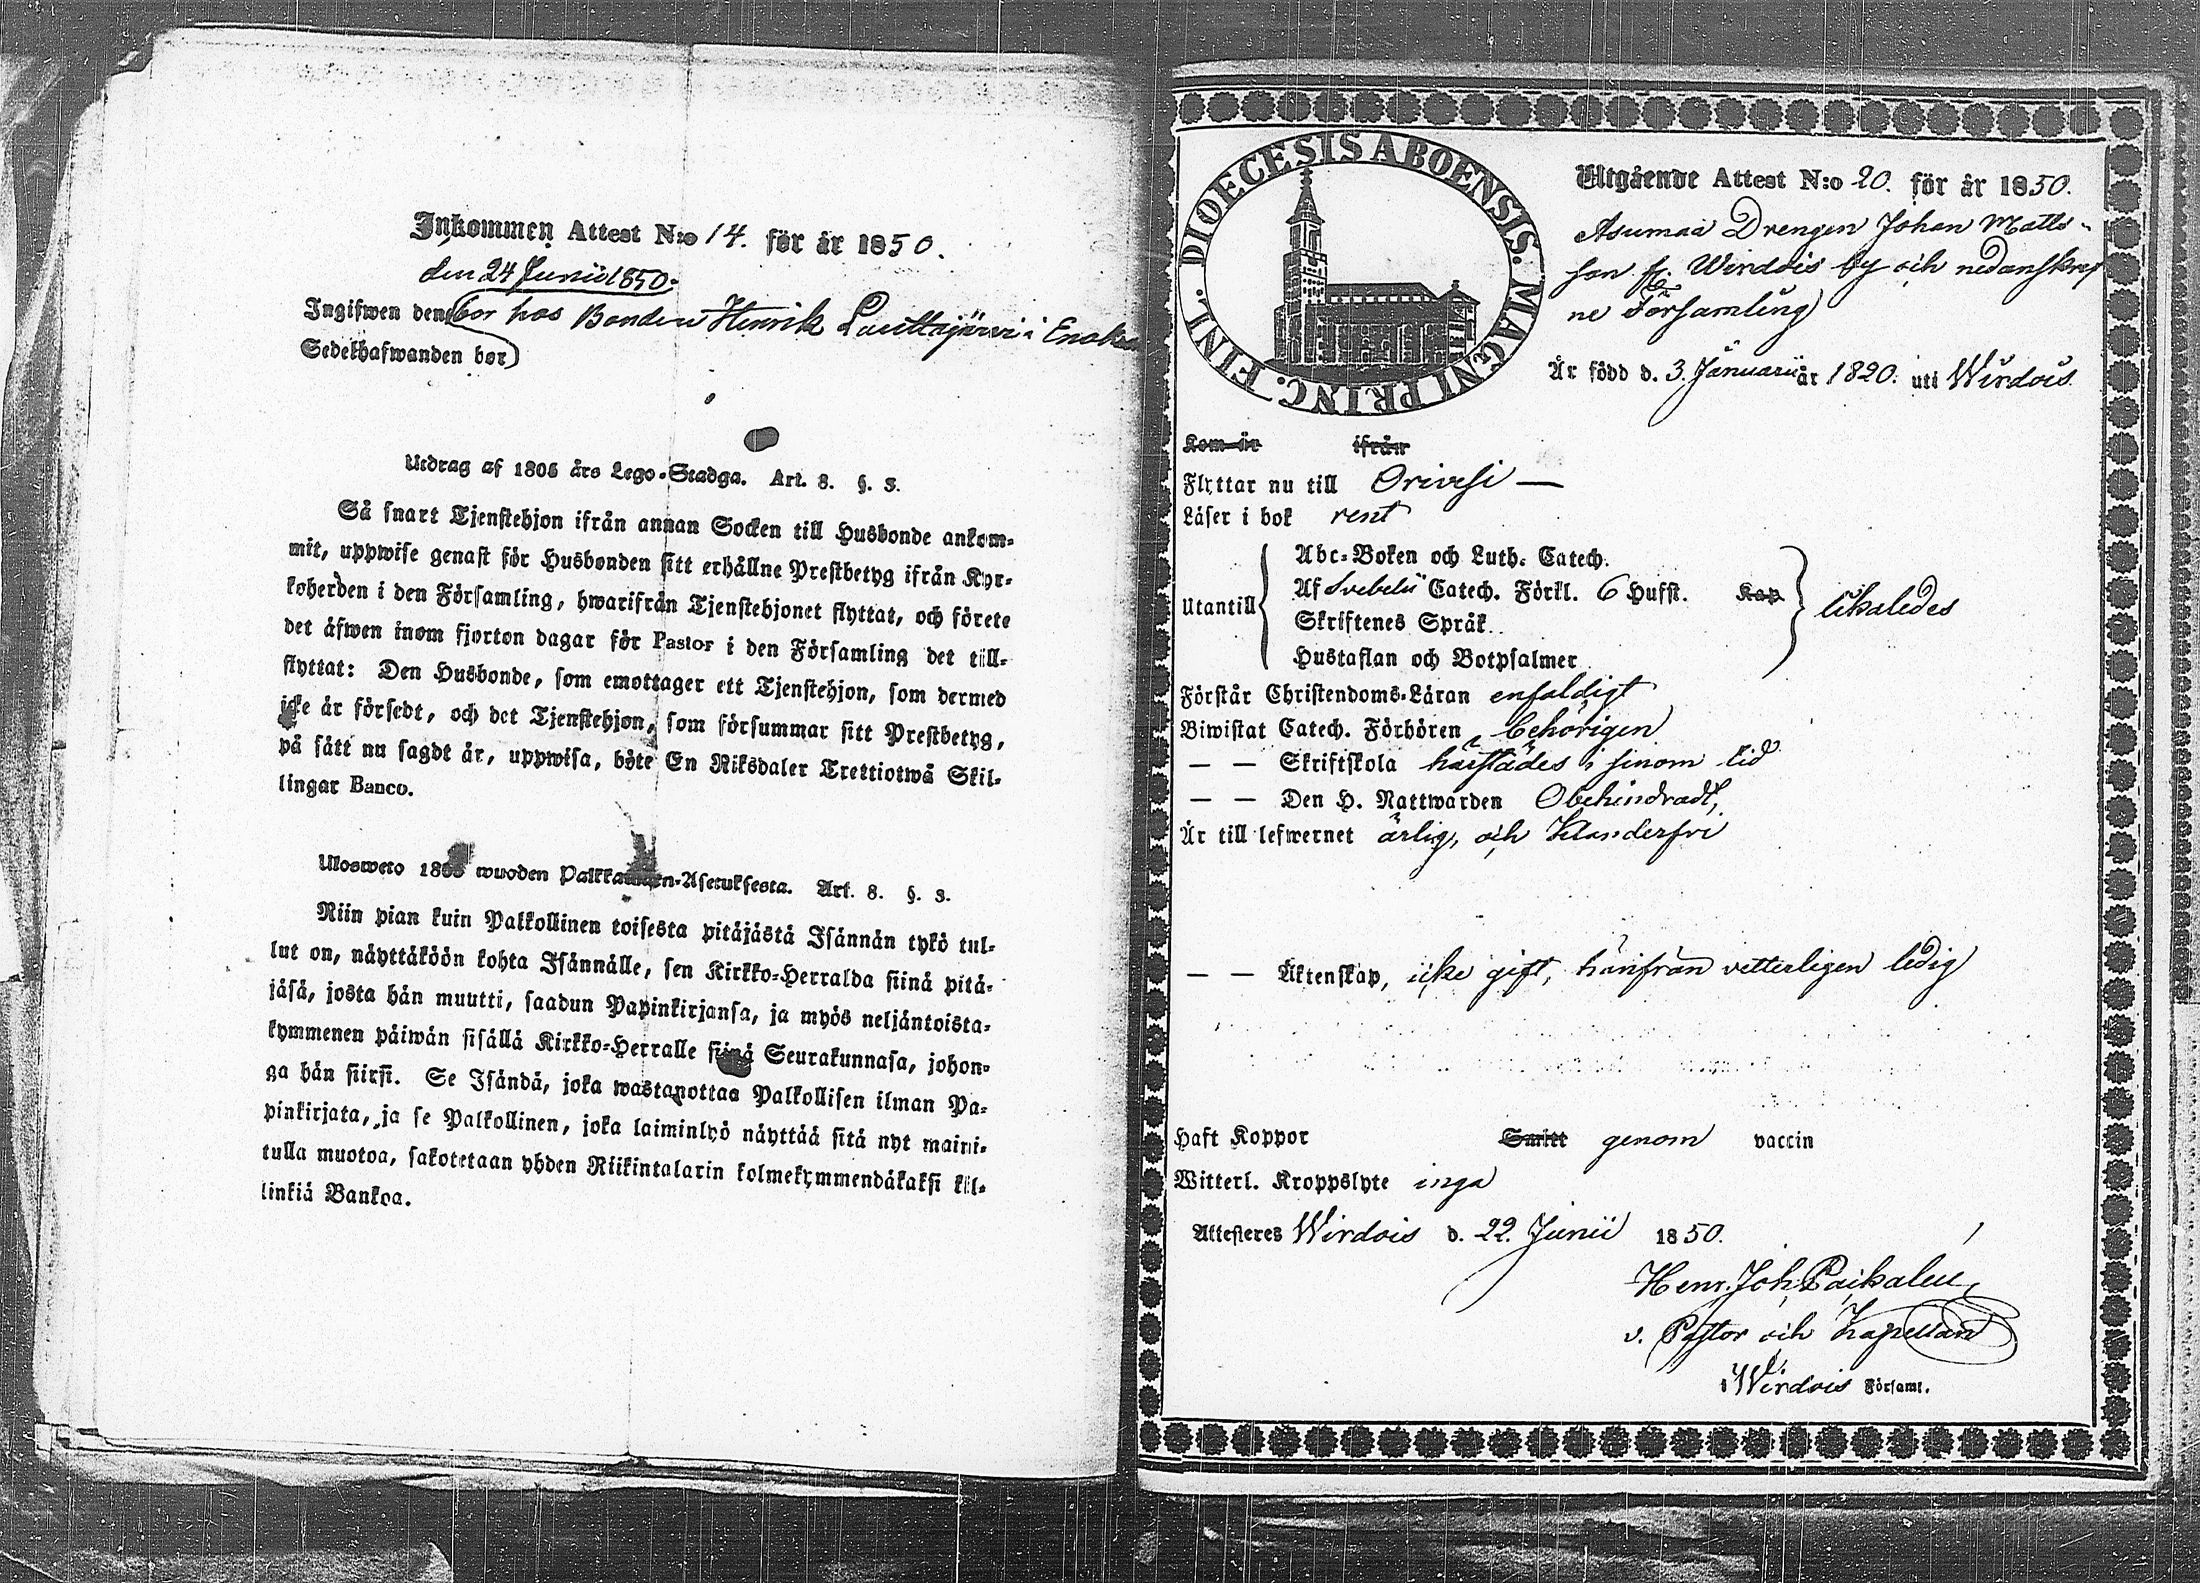 Inkommen Attest N:o 14. för år 1850.
den 24 Junii 1850.
Ingifwen den bor hos Bonden Henrik Lauttajärvi i
Sedelhafwanden bor
Utdrag af 1805 års Lego-Stadga. Art. 8. §. 3.
Så snart Tjenstehjon ifrån annan Socken till Husbonde ankom-
mit, uppwise genast för Husbonden sitt erhållne Prestbetyg ifrån Kyr-
koherden i den Församling, hwarifrån Tjenstehjonet flyttat, och förete
det äfwen inom fjorton dagar för Pastor i den Församling det till-
flyttat: Den Husbonde, som emottager ett Tjenstehjon, som dermed
icke är försedt, och det Tjenstehjon, som försummar sitt Prestbetyg,
på sätt nu sagdt är, uppwisa, böte En Riksdaler Trettiotwå Skil-
lingar Banco.
Ulosweto 1805 wuoden Palkkawäen-Asetuksesta. Art. 8. §. 3.
Niin pian kuin Palkollinen toisesta pitäjästä Isännän tykö tul-
lut on, näyttäköön kohta Isännälle, sen Kirkko-Herralda siinä pitä-
jäsä, josta hän muutti, saadun Papinkirjansa, ja myös neljäntoista-
kymmenen päiwän sisällä Kirkko-Herralle siinä Seurakunnasa, johon-
ga hän siirsi. Se Isändä, joka wastanottaa Palkollisen ilman Pa-
pinkirjata, ja se Palkollinen, joka laiminlyö näyttää sitä nyt maini-
tulla muotoa, sakotetaan yhden Riikintalarin kolmekymmendäkaksi kil-
linkiä Bankoa.
DIOECESIS ABOENSIS. MAGNI PRINC. FINL.
Utgående Attest N:o 20. för år 1850.
Asumaa Drengen Johan Matts-
son fr. Wirdois by och nedanskref
ne Församling
Är född d. 3. Januarii år 1820. uti Wirdois.
Kom år ifrån
Flyttar nu till Orivesi —
Läser i bok rent
Utantill
Abc-Boken och Luth. Catech.
Af Svebelii Catech. Förkl. 6 Hufst. Kap
Skriftenes Språk
Hustaflan och Botpsalmer
likaledes
Förstår Christendoms-Läran enfaldigt
Biwistat Catech. Förhören behörigen
— — Skriftskola härstädes i sinom tid
— — Den H. Nattwarden Obehindradt,
Är till lefwernet ärlig, och klanderfri
— — Äktenskap, icke gift, härifrån vetterligen ledig
Haft Koppor Smitt genom vaccin
Witterl. Kroppslyte inga
Attesteres Wirdois d. 22. Junii 1850.
Henr. Joh.
v. Pastor och Kapellan
i Wirdois Församl.